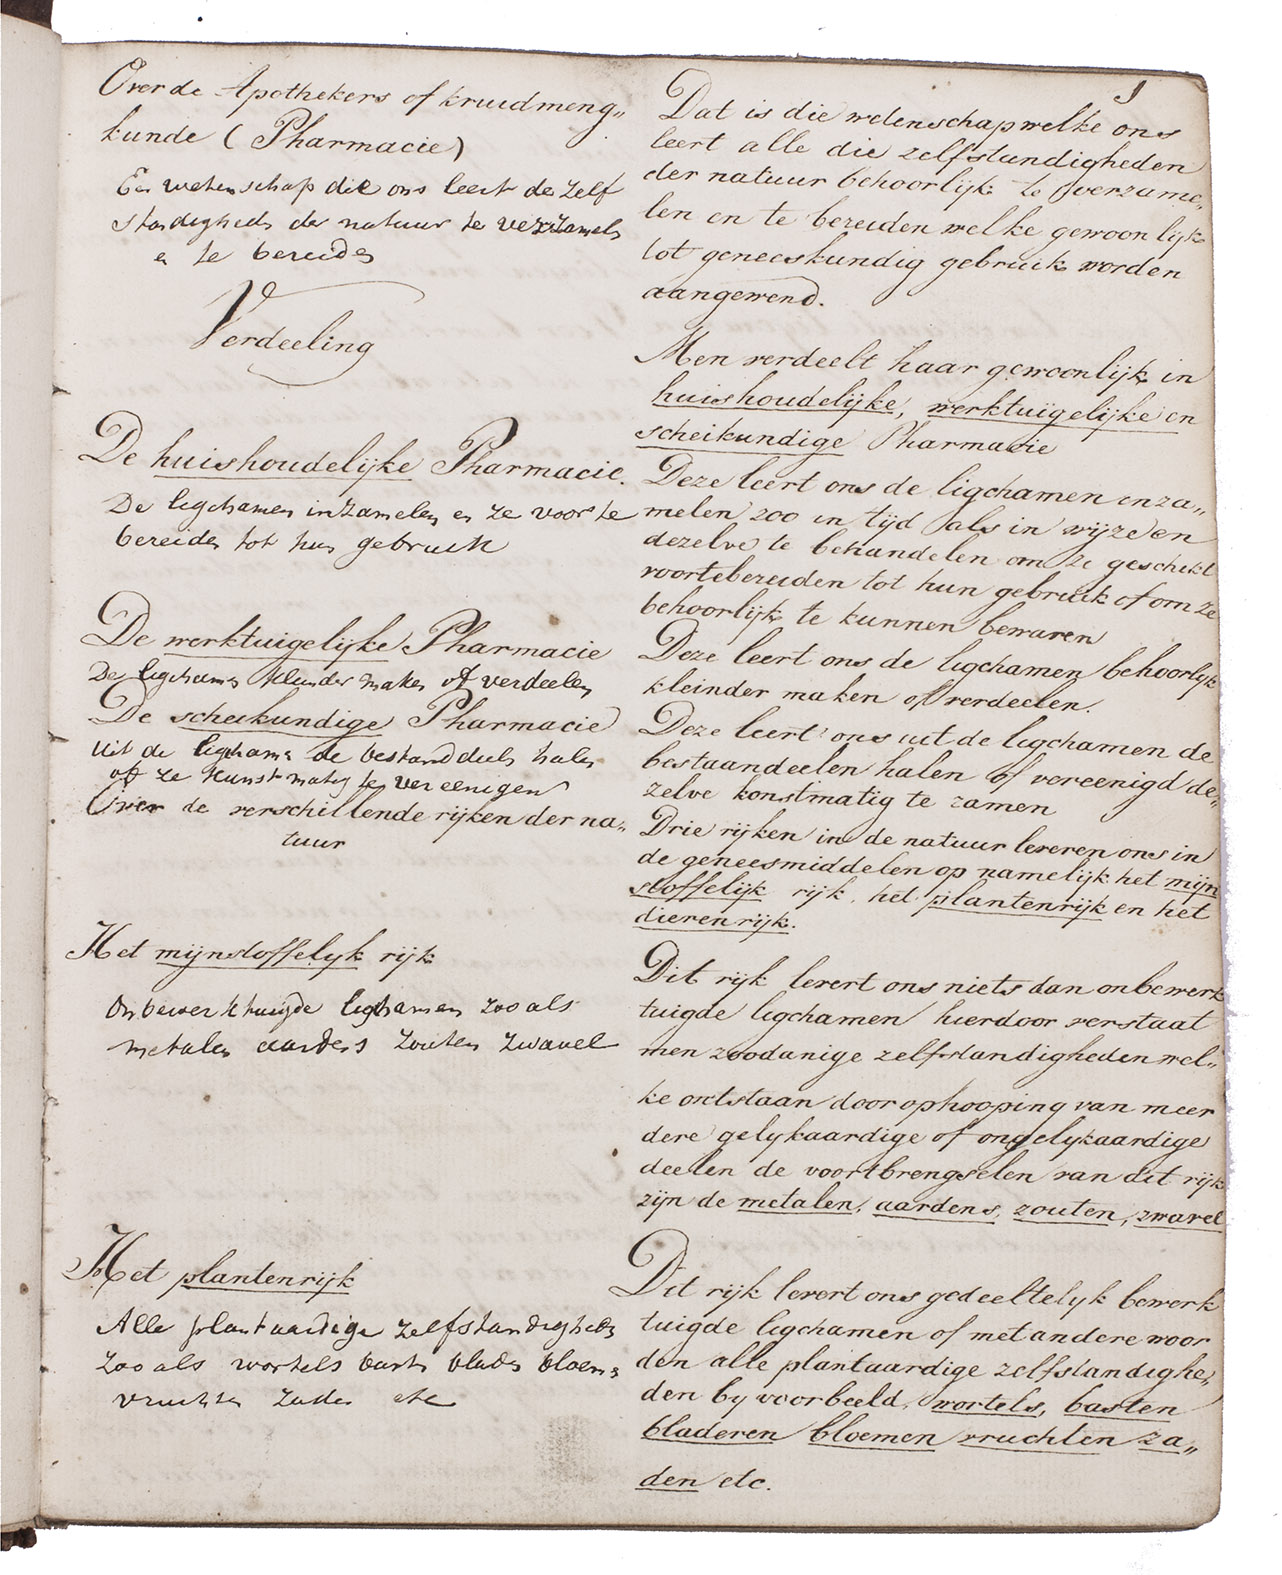 1
Over de Apothekers of kruidmeng„
kunde (Pharmacie)
Een wetenschap die ons leert de zelf
standigheden der natuur te verzamelen
en te bereiden
Verdeeling
De huishoudelijke Pharmacie.
De ligchamen inzamelen en ze voor te
bereiden tot hun gebruik
De werktuigelijke Pharmacie
De ligchamen kleinder maken of verdeelen
De scheikundige Pharmacie
Uit de ligchamen de bestanddeels halen
of ze kunstmatig te vereenigen
Over de verschillende rijken der na„
tuur
Het mijnstoffelyk rijk
Onbewerktuigde ligchamen zoo als
metalen aardens zouten zwavel
Het plantenrijk
Alle plantaardige zelfstandigheden
zoo als wortels basten bladen bloemen
vruchten zaden etc
Dat is die wetenschap welke ons
leert alle die zelfstandigheden
der natuur behoorlijk te verzame„
len en te bereiden welke gewoonlijk
tot geneeskundig gebruik worden
aangewend.
Men verdeelt haar gewoonlijk in
huishoudelijke, werktuigelijke en
scheikundige Pharmacie
Deze leert ons de ligchamen inza„
melen zoo in tijd als in wijze en
dezelve te behandelen om ze geschikt
voortebereiden tot hun gebruik of om ze
behoorlijk te kunnen bewaren
Deze leert ons de ligchamen behoorlijk
kleinder maken of verdeelen.
Deze leert ons uit de ligchamen de
bestaandeelen halen of vereenigd de„
zelve konstmatig te zamen
Drie rijken in de natuur leveren ons in
de geneesmiddelen op namelijk het mijn
stoffelijk rijk, het plantenrijk en het
dierenrijk.
Dit rijk levert ons niets dan onbewerk
tuigde ligchamen hierdoor verstaat
men zoodanige zelfstandigheden wel„
ke ontstaan door ophooping van meer
dere gelykaardige of ongelykaardige
deelen de voortbrengselen van dit rijk
zijn de metalen, aardens, zouten, zwavel
Dit rijk levert ons gedeeltelyk bewerk
tuigde ligchamen of met andere woor
den alle plantaardige zelfstandighe„
den by voorbeeld, wortels, basten
bladeren bloemen vruchten za„
den etc.